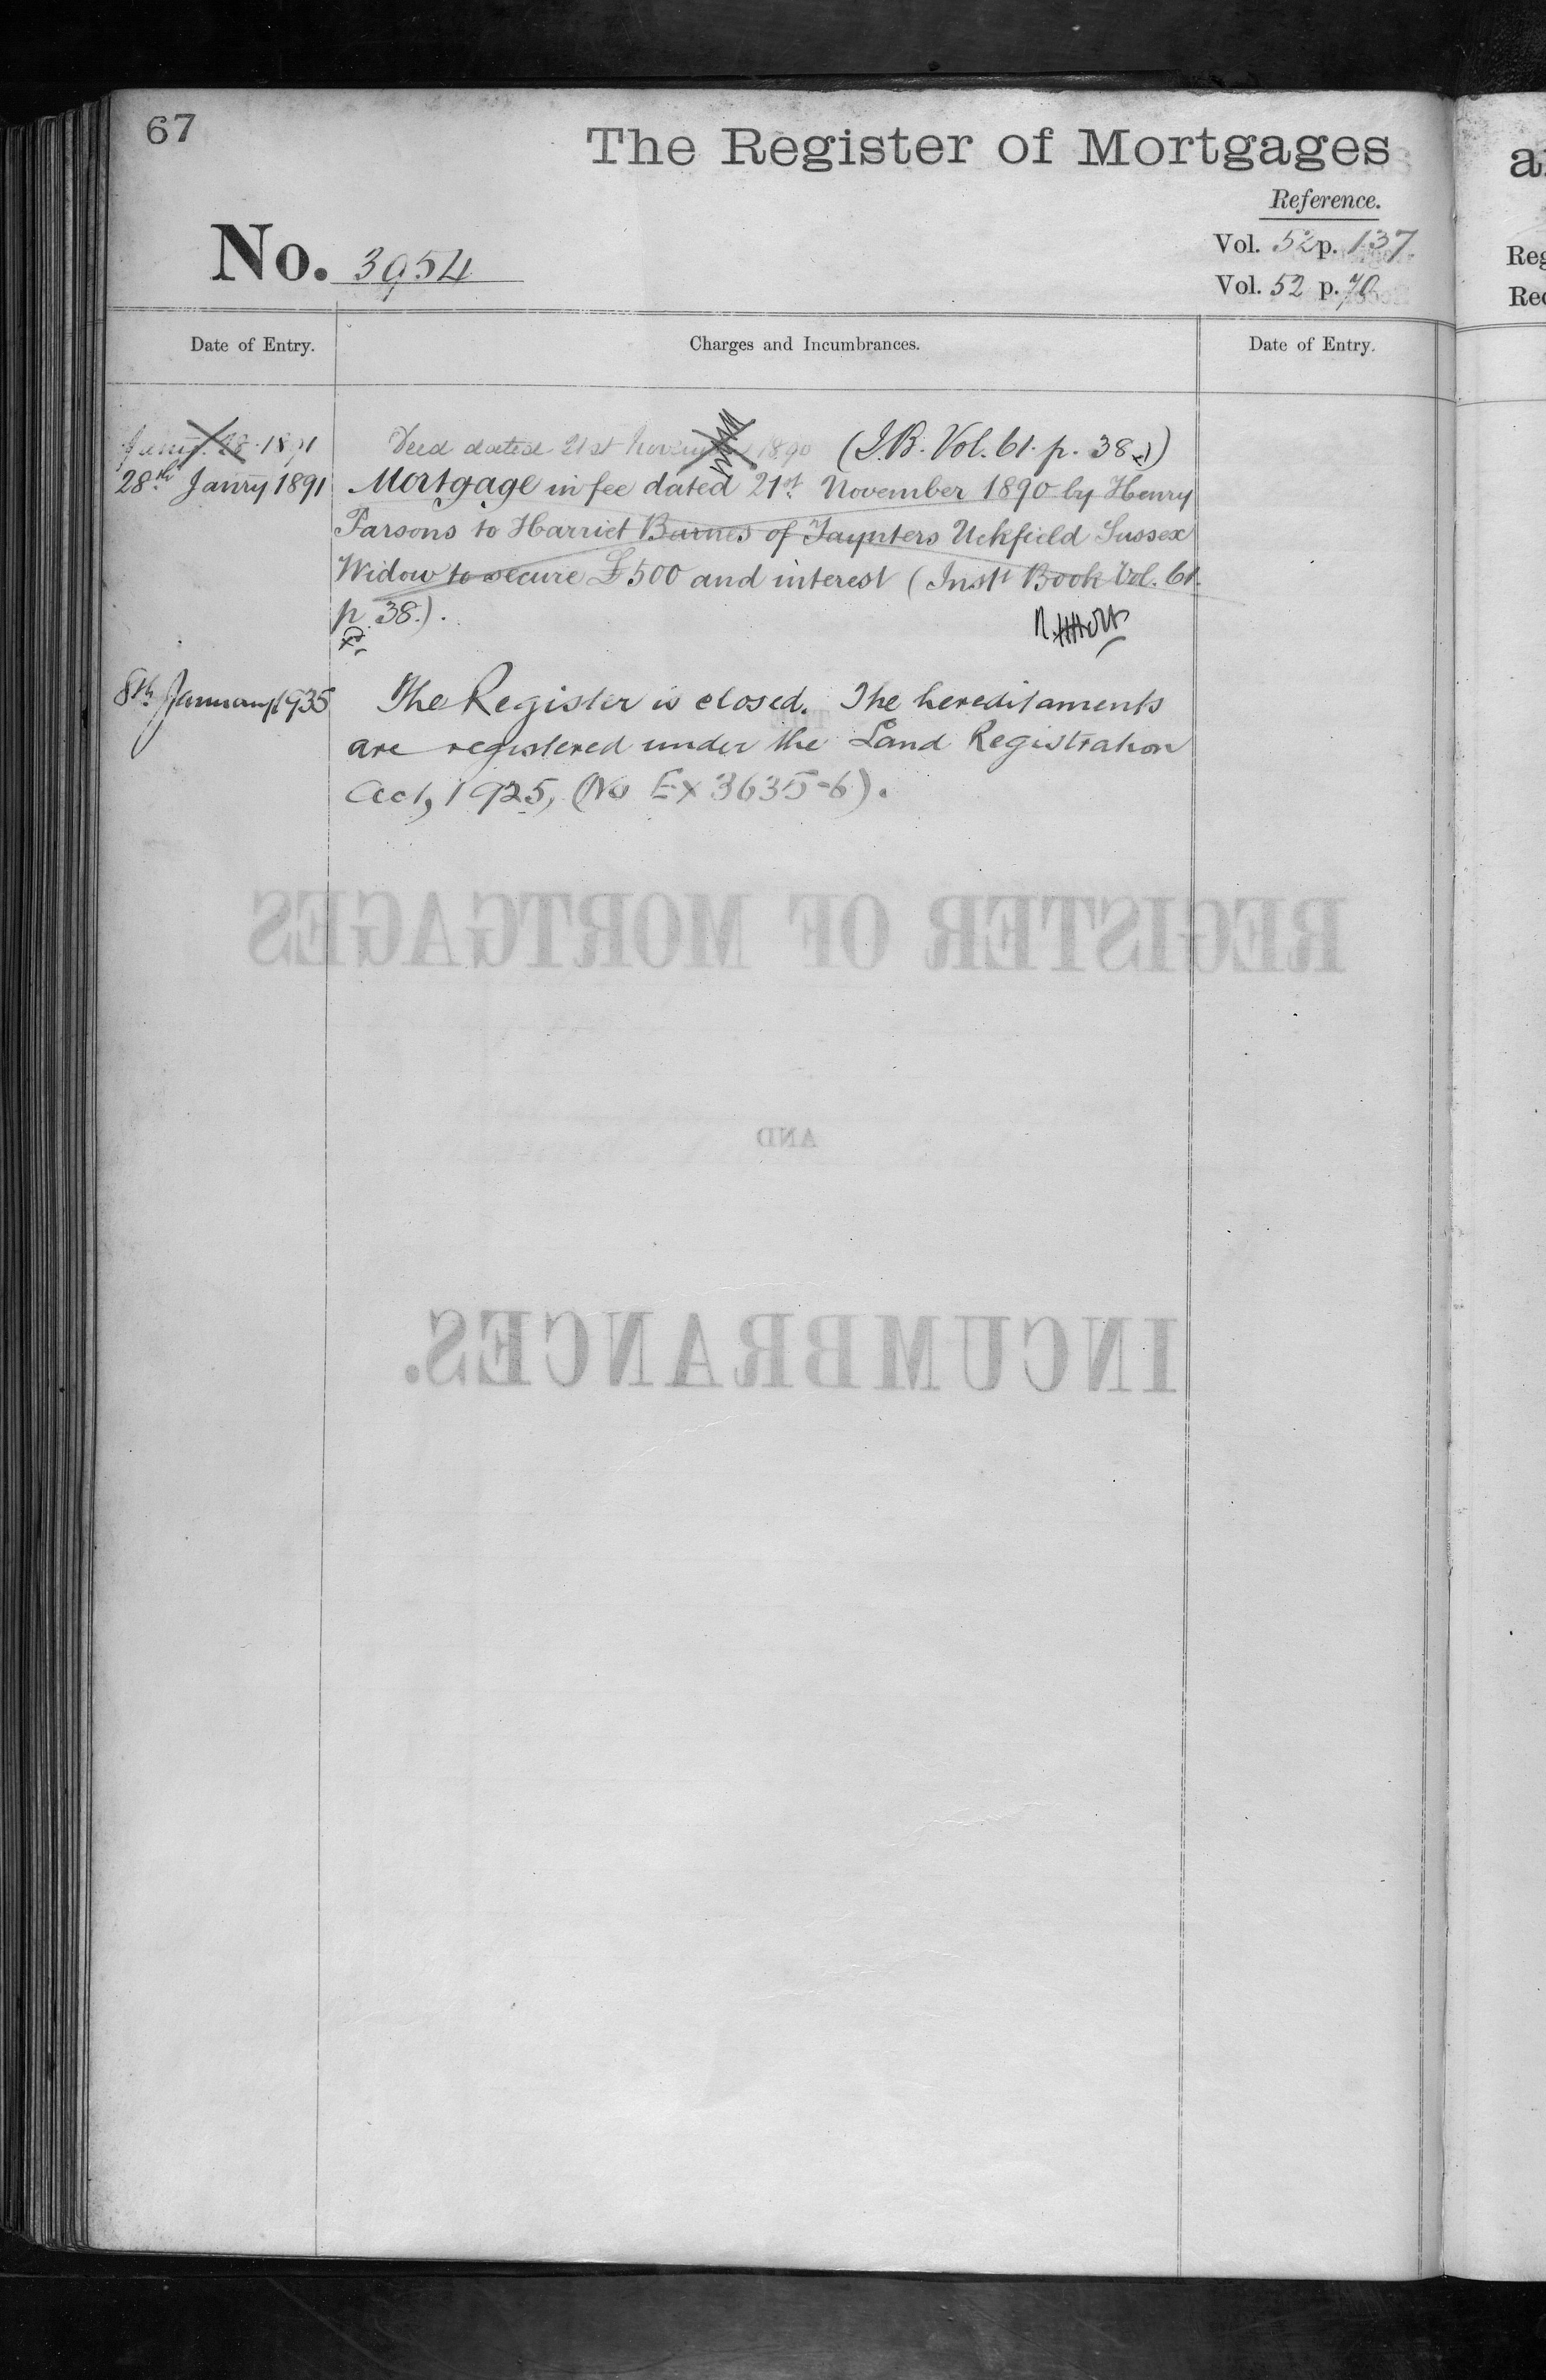 67
The Register of Mortgages
Reference.
No. 3954
Vol. 52 p. 137
Vol. 52 p. 70
Date of Entry.
Charges and Incumbrances.
Date of Entry.
28 1891
Deed dated 21st November 1890 (I.B. Vol. 61. p. 38.)
28th Janry 1891
Mortgage in fee dated 21st November 1890 by Henry
Parsons to Harriet Barnes of Taynters Uckfield Sussex
Widow to secure £500 and interest (Inst Book Vol. 61.
p. 38.).
8th January 1935
The Register is closed. The hereditaments
are registered under the Land Registration
Act, 1925, (No Ex 3635-6).
REGISTER OF MORTGAGES
AND
INCUMBRANCES.